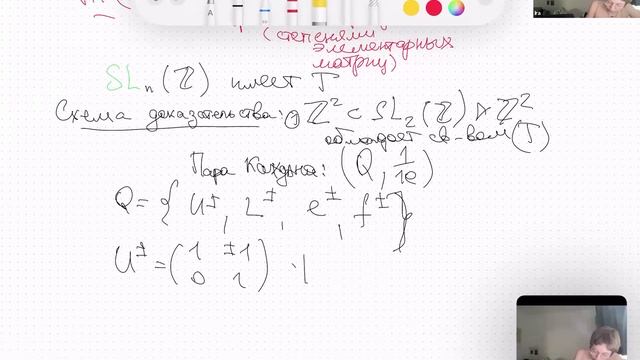 (степенями
элементарных
матриц)
SLₙ(ℤ) имеет T
Схема доказательства: ℤ² ⊂ SL₂(ℤ) ⋉ ℤ²
обладает св-вом (T)
Пара Каждана: (Q, 1/10)
Q = { U^±, L^±, e^±, f^± }
U^± = (1 ±1
0 1)